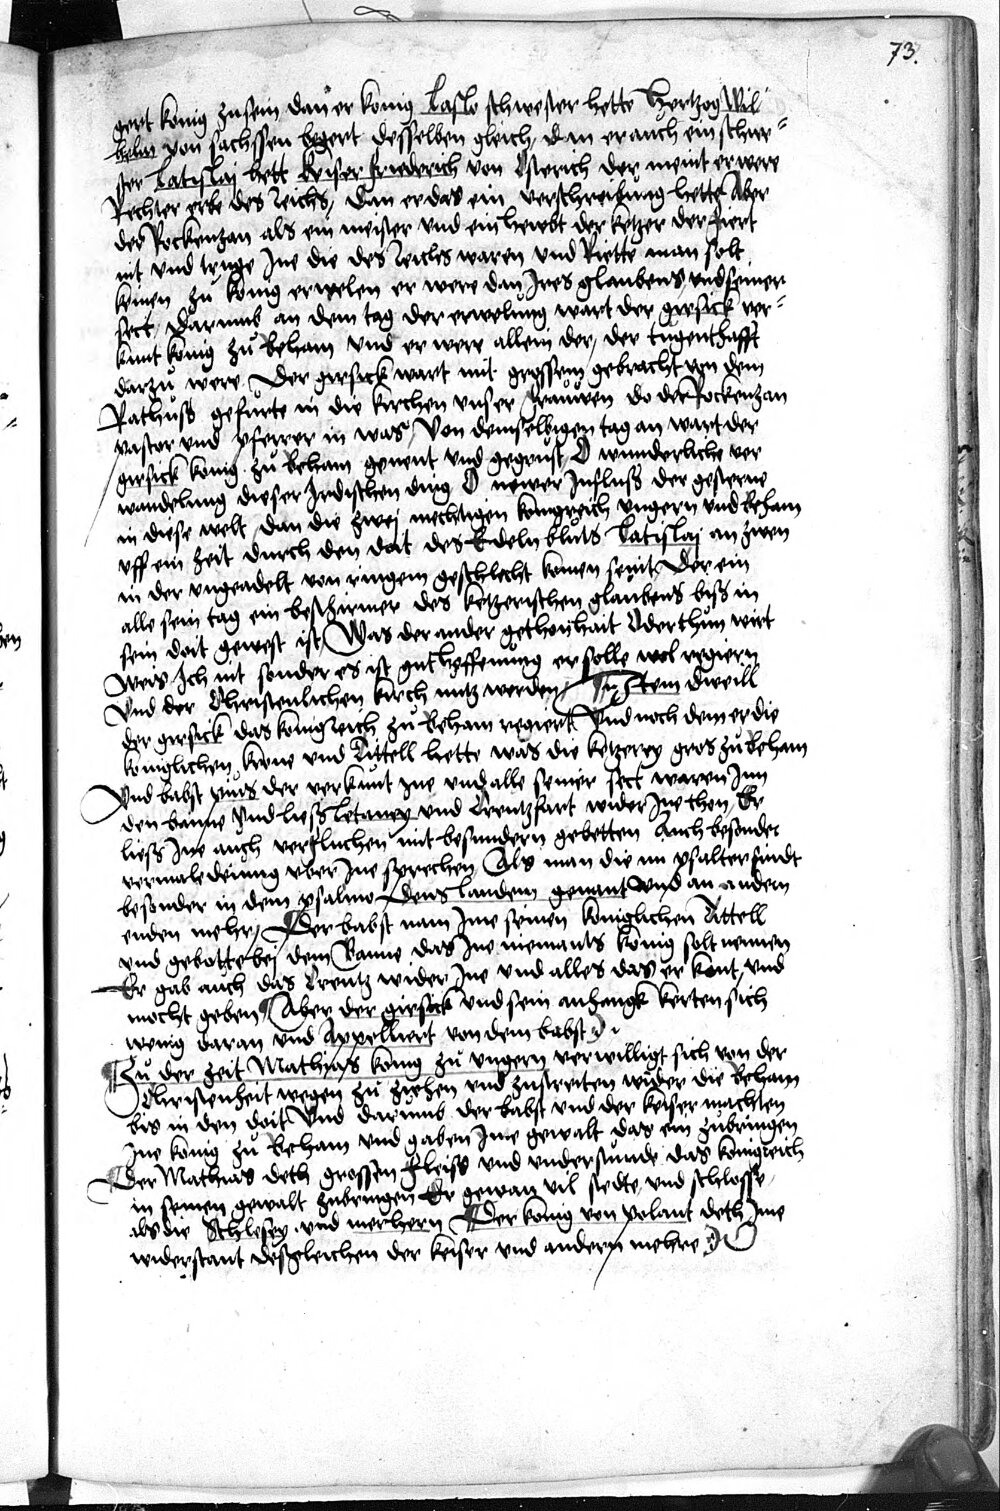 73.
gert konig zusein dan er konig Laslo schwester hette Hertzog Wil
helm von sachssen begert desselben gleich, dan er auch ein schwe=
ster Latislai hett keiser friederich von Osterich der meint er were
Rechter erbe des reichs, dan er das ein verschreibung hette Aber
der Rockenzan als ein meister und ein hewbt der ketzer der fiert
nit und truge Ine die des reichs waren und Riette man solt
keinen zu konig erwelen er were dan Ires glaubens, und seiner
sect, darumb an dem tag der erwelung wart der girsick ver=
kunt konig zu Beham und er were allein der, der tugenthafft
darzu were Der girsick wart mit grossem gebracht von dem
Rathuss gefurte in die kirchen unser frauwen do der Rockenzan
pastor und pferrer in was, Von demselbigen tag an wart der
girsick konig zu Beham genent und gegrust O wunderliche ver
wandelung dieser Irdischen ding O newer Influss der gesterne
in diese welt dan die zwej mechtigen konigreich ungern und Beham
uff ein zeit durch den doit des Edeln bluts Latislai an zwen
in der ungeadelt von ringem geschlecht komen seint, Der ein
alle sein tag ein beschirmer des ketzerischen glaubens biss in
sein doit gewest ist, Was der ander gethon hait Oder thun wirt
Weis Ich nit sonder es ist gut hoffenung er solle wol regiern
Und der Christenlichen kirch nutz werden, Item dweill
der girsick das konigreich zu Beham regiert Und noch dem er die
koniglichen krone und Tittell hette was die ketzerey gros zu Beham
Und babst pius der verkunt Ine und alle seiner sect waren Inn
den banne Und liess letaney und Creutzfart wider Ine thon, Er
liess Ine auch verfluchen mit besundern gebetten Auch besonder
vermaledeiung uber Ine sprechen Als man die im psalter findt
besonder in dem psalmo Deus laudem genant und an andern
enden mehr, Der babst nam Ime seinen koniglichen Tittell
und gebotte bej dem Banne das Ine niemants konig solt nennen
Er gab auch das Creutz wider Ine und alles das er kont, und
mocht geben Aber der girsick und sein anhangk kerten sich
wenig daran und Appelliert von dem babst
Zu der zeit Mathias konig zu ungern verwilligt sich von der
Christenheit wegen zu ziehen und zustreiten wider die Beham
bis in den doit Und darumb der babst und der keiser machten
Ine konig zu Beham und gaben Ime gewalt das ein zubringen
Der Mathias deth grossen fleiss und understunde das konigreich
in seinen gewalt zubringen Er gewan vil stedte und schlosse,
als die Schlesey und merhern Der konig von polant deth Ime
widerstant desgleichen der keiser und andern mehre